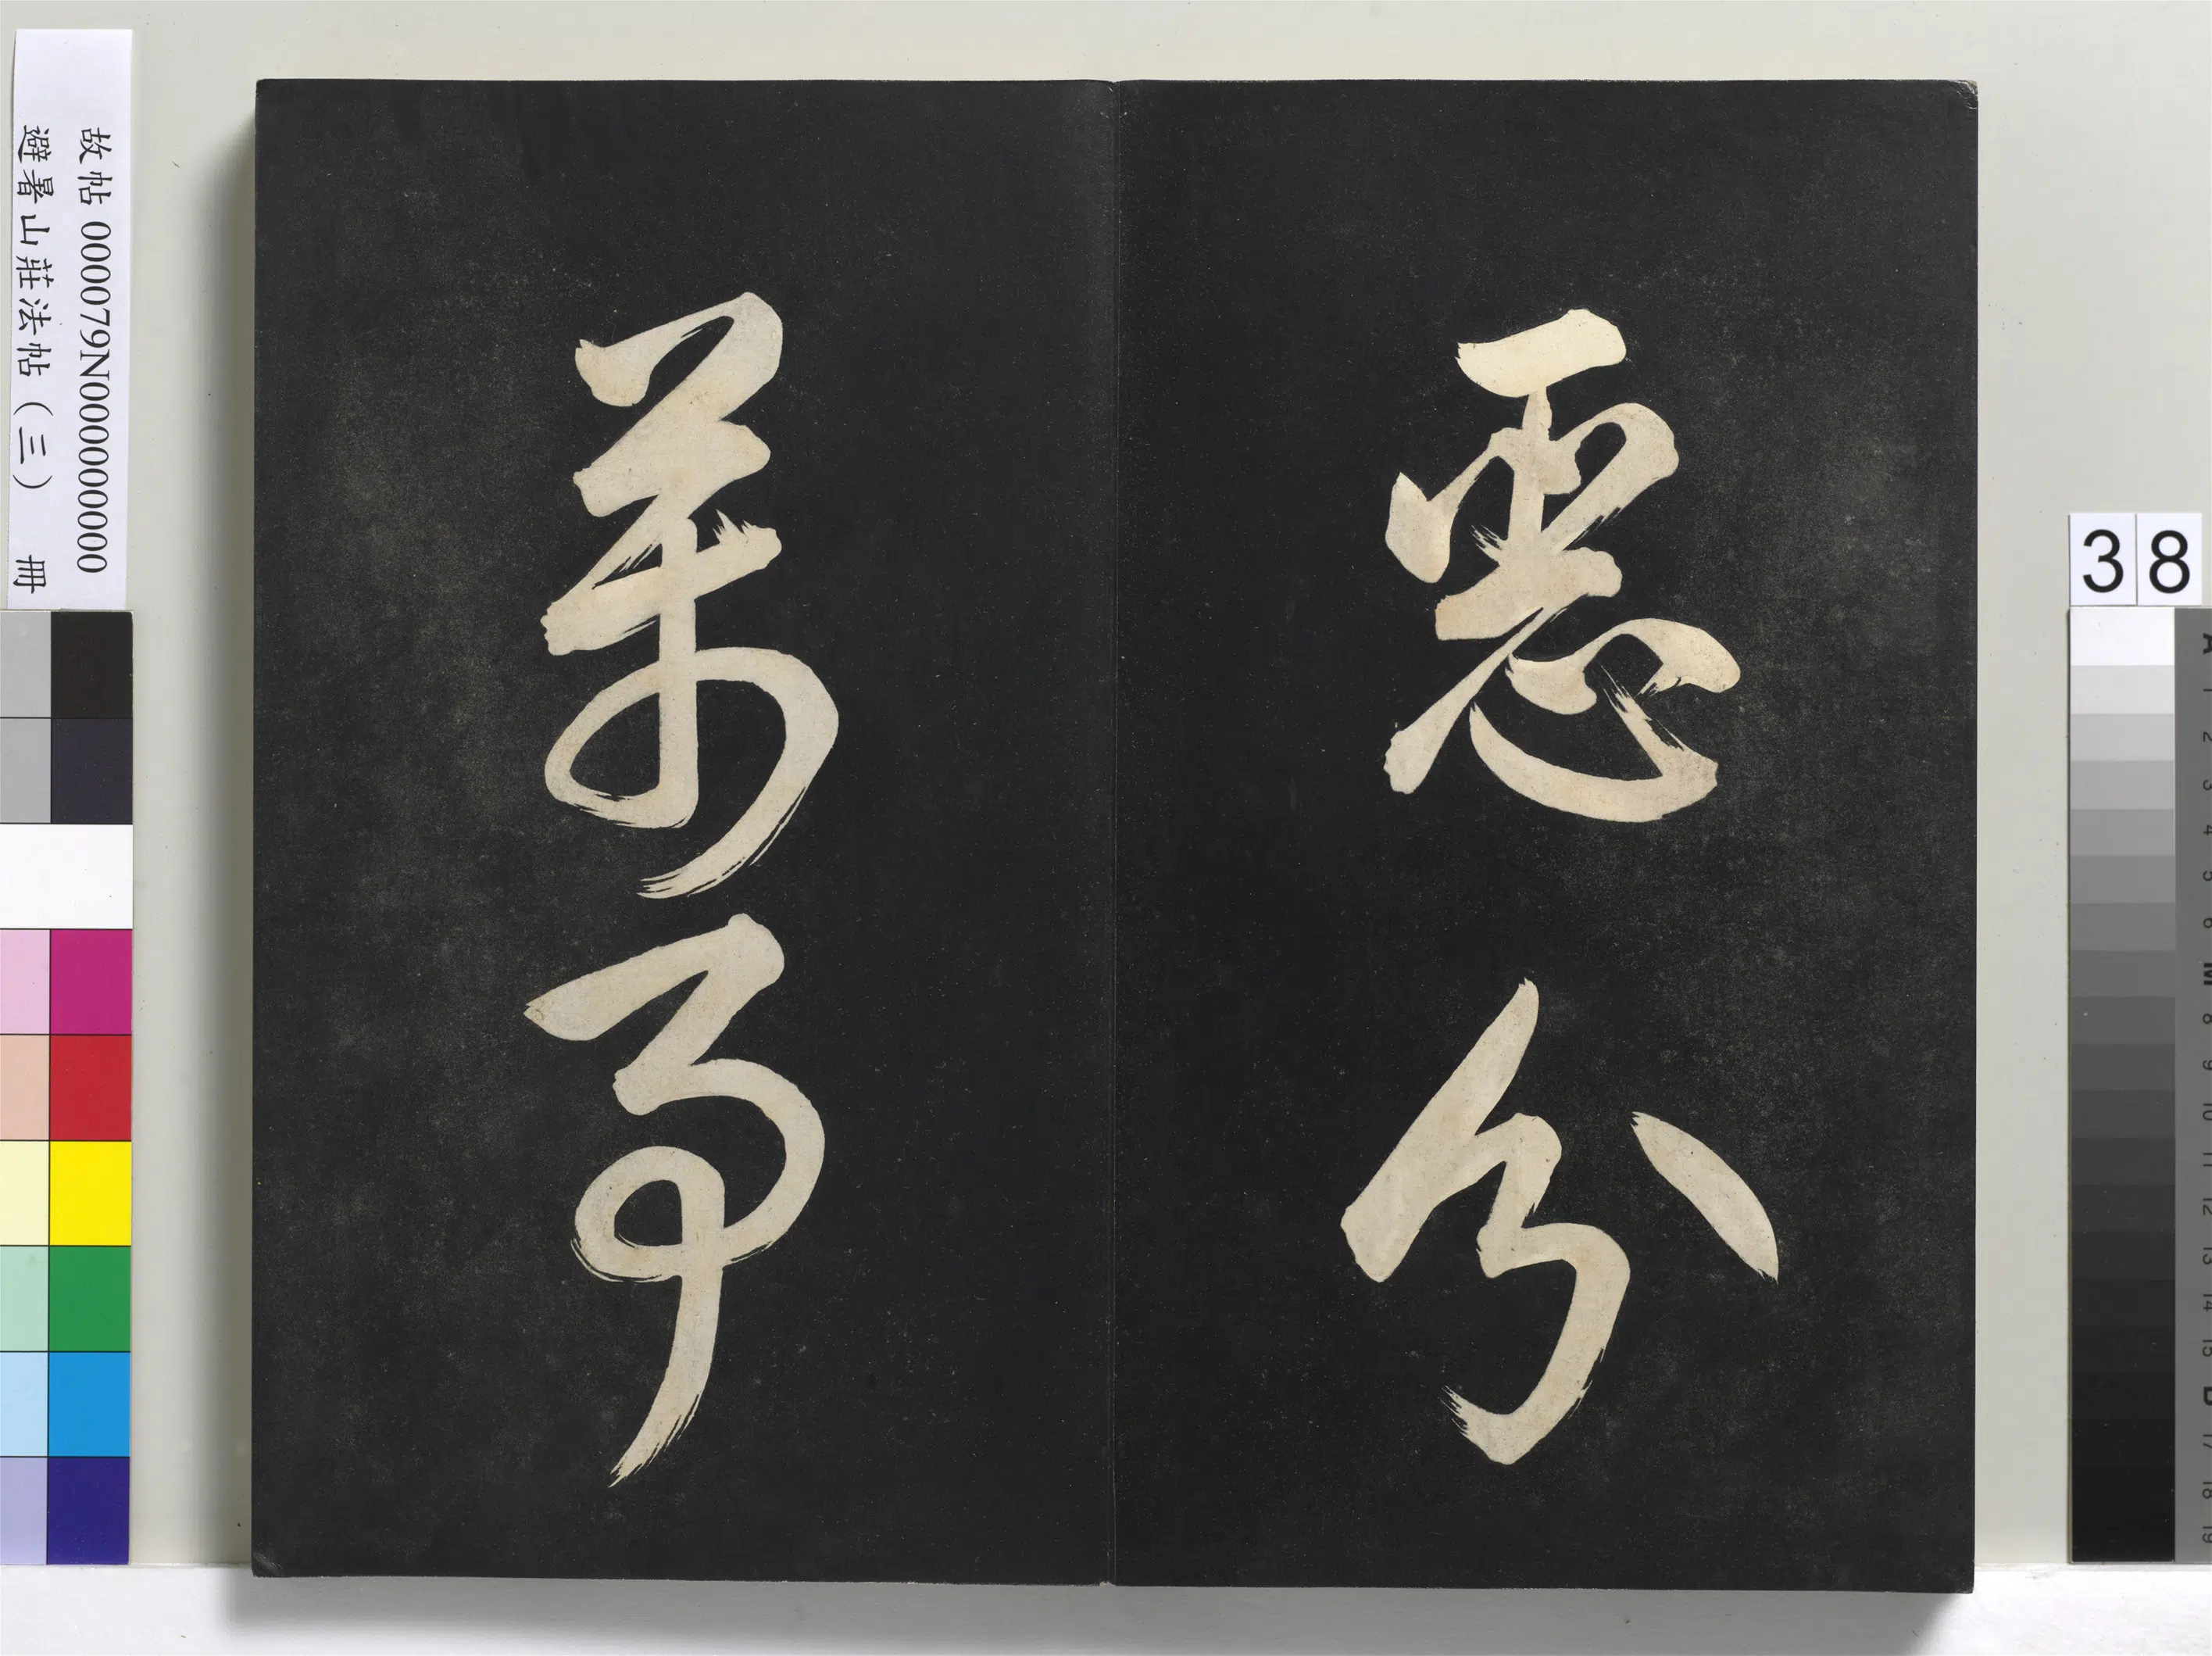 惡分
萬事
故帖 000079N000000000
避暑山莊法帖(三) 冊
38
A 1 2 3 4 5 6 M 8 9 10 11 12 13 14 15 B 17 18 19